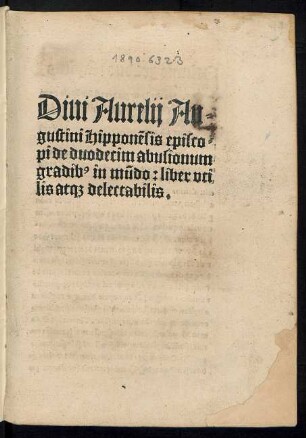 1890.6323
Diui Aurelij Au-
gustini Hipponēsis episco
pi de duodecim abusionum
gradibꝰ in mūdo : liber vti
lis atqꝫ delectabilis.